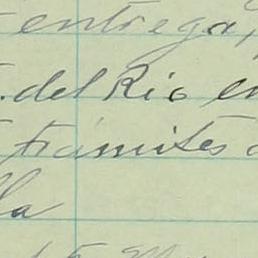 entrega,
del Rio en
trámites
la